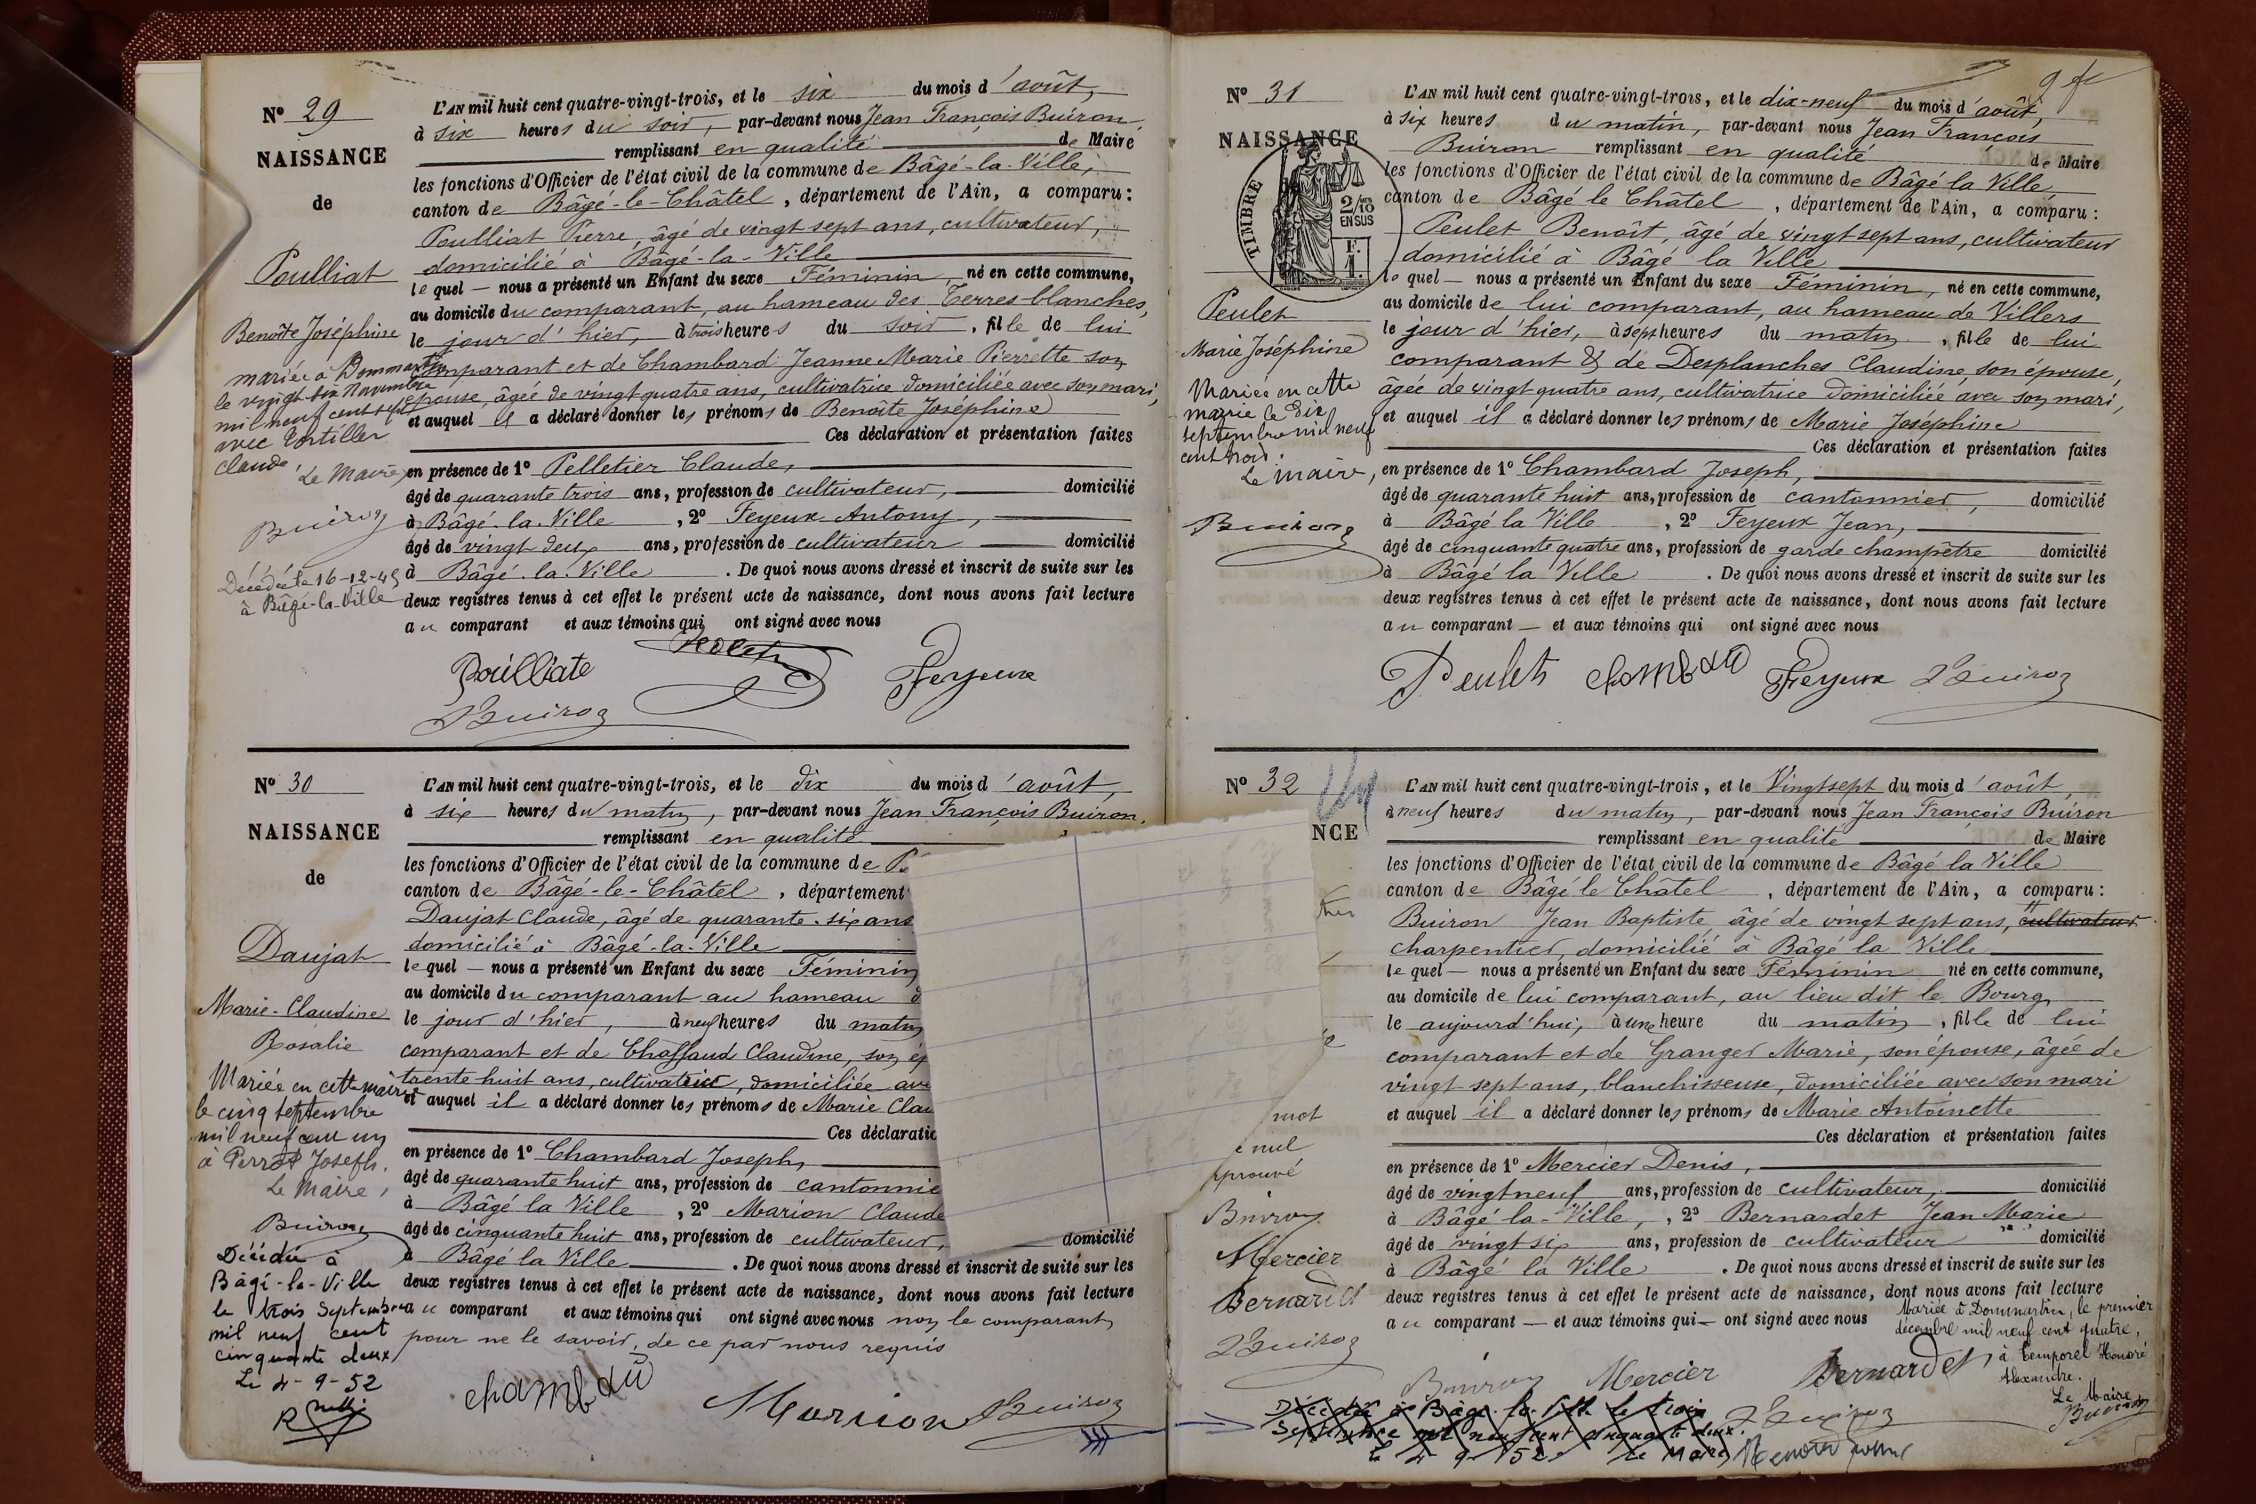 Nº 29
NAISSANCE
de
Poulliat
Benoîte Joséphine
mariée à Dommartin
le vingt six Novembre
mil neuf cent sept
avec Tortiller
Claude.
Le Maire,
Buiron
Décédée le 16-12-49
à Bâgé-la-Ville
L'AN mil huit cent quatre-vingt-trois, et le six du mois d'août,
à six heures du soir, par-devant nous Jean François Buiron
remplissant en qualité de Maire
les fonctions d'Officier de l'état civil de la commune de Bâgé-la-Ville,
canton de Bâgé-le-Châtel, département de l'Ain, a comparu :
Poulliat Pierre, âgé de vingt sept ans, cultivateur,
domicilié à Bâgé-la-Ville
lequel — nous a présenté un Enfant du sexe Féminin, né en cette commune,
au domicile du comparant, au hameau des Terres blanches,
le jour d'hier, à trois heures du soir, fille de lui
comparant et de Chambard Jeanne Marie Pierrette son
épouse, âgée de vingt quatre ans, cultivatrice domiciliée avec son mari,
et auquel il a déclaré donner les prénoms de Benoîte Joséphine
Ces déclaration et présentation faites
en présence de 1º Pelletier Claude,
âgé de quarante trois ans, profession de cultivateur, domicilié
à Bâgé-la-Ville, 2º Feyeux Antony,
âgé de vingt deux ans, profession de cultivateur domicilié
à Bâgé-la-Ville. De quoi nous avons dressé et inscrit de suite sur les
deux registres tenus à cet effet le présent acte de naissance, dont nous avons fait lecture
au comparant et aux témoins qui ont signé avec nous
Poulliate
Feyeux
Buiron
Nº 30
NAISSANCE
de
Daujat
Marie-Claudine
Rosalie
Mariée en cette mairie
le cinq septembre
mil neuf cent un
à Perret Joseph.
Le Maire,
Buiron
Décédée à
Bâgé-la-Ville
le trois Septembre
mil neuf cent
cinquante deux
Le 4-9-52
L'AN mil huit cent quatre-vingt-trois, et le dix du mois d'août,
à six heures du matin, par-devant nous Jean François Buiron,
remplissant en qualité
les fonctions d'Officier de l'état civil de la commune de
canton de Bâgé-le-Châtel, département
Daujat Claude, âgé de quarante-six ans
domicilié à Bâgé-la-Ville
lequel — nous a présenté un Enfant du sexe Féminin
au domicile du comparant au hameau
le jour d'hier, à neuf heures du matin
comparant et de Chaffaud Claudine, son
trente huit ans, cultivatrice, domiciliée
et auquel il a déclaré donner les prénoms de Marie
Ces
en présence de 1º Chambard Joseph,
âgé de quarante huit ans, profession de cantonnie
à Bâgé la Ville, 2º Marion Claude
âgé de cinquante huit ans, profession de cultivateur, domicilié
à Bâgé la Ville. De quoi nous avons dressé et inscrit de suite sur les
deux registres tenus à cet effet le présent acte de naissance, dont nous avons fait lecture
au comparant et aux témoins qui ont signé avec nous non le comparant
pour ne le savoir, de ce par nous requis
Chambard
Marion
Buiron
Nº 31
NAISSANCE
TIMBRE
2/10
EN SUS
F.
1.
Peulet
Marie Joséphine
Mariée en cette
mairie le dix
septembre mil neuf
cent trois.
Le maire,
Buiron
L'AN mil huit cent quatre-vingt-trois, et le dix-neuf du mois d'août,
à six heures du matin, par-devant nous Jean François
Buiron remplissant en qualité de Maire
les fonctions d'Officier de l'état civil de la commune de Bâgé la Ville
canton de Bâgé le Châtel, département de l'Ain, a comparu :
Peulet Benoît, âgé de vingt sept ans, cultivateur
domicilié à Bâgé la Ville
lequel — nous a présenté un Enfant du sexe Féminin, né en cette commune,
au domicile de lui comparant, au hameau de Villers
le jour d'hier, à sept heures du matin, fille de lui
comparant & de Desplanches Claudine, son épouse,
âgée de vingt quatre ans, cultivatrice domiciliée avec son mari,
et auquel il a déclaré donner les prénoms de Marie Joséphine
Ces déclaration et présentation faites
en présence de 1º Chambard Joseph,
âgé de quarante huit ans, profession de cantonnier, domicilié
à Bâgé la Ville, 2º Feyeux Jean,
âgé de cinquante quatre ans, profession de garde champêtre domicilié
à Bâgé la Ville. De quoi nous avons dressé et inscrit de suite sur les
deux registres tenus à cet effet le présent acte de naissance, dont nous avons fait lecture
au comparant — et aux témoins qui ont signé avec nous
Peulet Chambard Feyeux Buiron
Nº 32
NCE
mot
nul
prouvé
Buiron
Mercier
Bernardet
Buiron
L'AN mil huit cent quatre-vingt-trois, et le Vingt sept du mois d'août,
à neuf heures du matin, par-devant nous Jean François Buiron
remplissant en qualité de Maire
les fonctions d'Officier de l'état civil de la commune de Bâgé la Ville
canton de Bâgé le Châtel, département de l'Ain, a comparu :
Buiron Jean Baptiste, âgé de vingt sept ans, cultivateur
charpentier, domicilié à Bâgé la Ville
lequel — nous a présenté un Enfant du sexe Féminin né en cette commune,
au domicile de lui comparant, au lieu dit le Bourg
le aujourd'hui, à une heure du matin, fille de lui
comparant et de Granger Marie, son épouse, âgée de
vingt sept ans, blanchisseuse, domiciliée avec son mari
et auquel il a déclaré donner les prénoms de Marie Antoinette
Ces déclaration et présentation faites
en présence de 1º Mercier Denis,
âgé de vingt neuf ans, profession de cultivateur, domicilié
à Bâgé la-Ville, 2º Bernardet Jean Marie
âgé de vingt six ans, profession de cultivateur domicilié
à Bâgé la Ville. De quoi nous avons dressé et inscrit de suite sur les
deux registres tenus à cet effet le présent acte de naissance, dont nous avons fait lecture
au comparant — et aux témoins qui — ont signé avec nous
Mariée à Dommartin, le premier
décembre mil neuf cent quatre,
à Temporel Honoré
Alexandre.
Le Maire
Buiron
Buiron Mercier Bernardet
Buiron
Décédée à Bâgé-la-Ville le trois
Septembre mil neuf cent cinquante deux.
Le 4-9-52 Le Maire